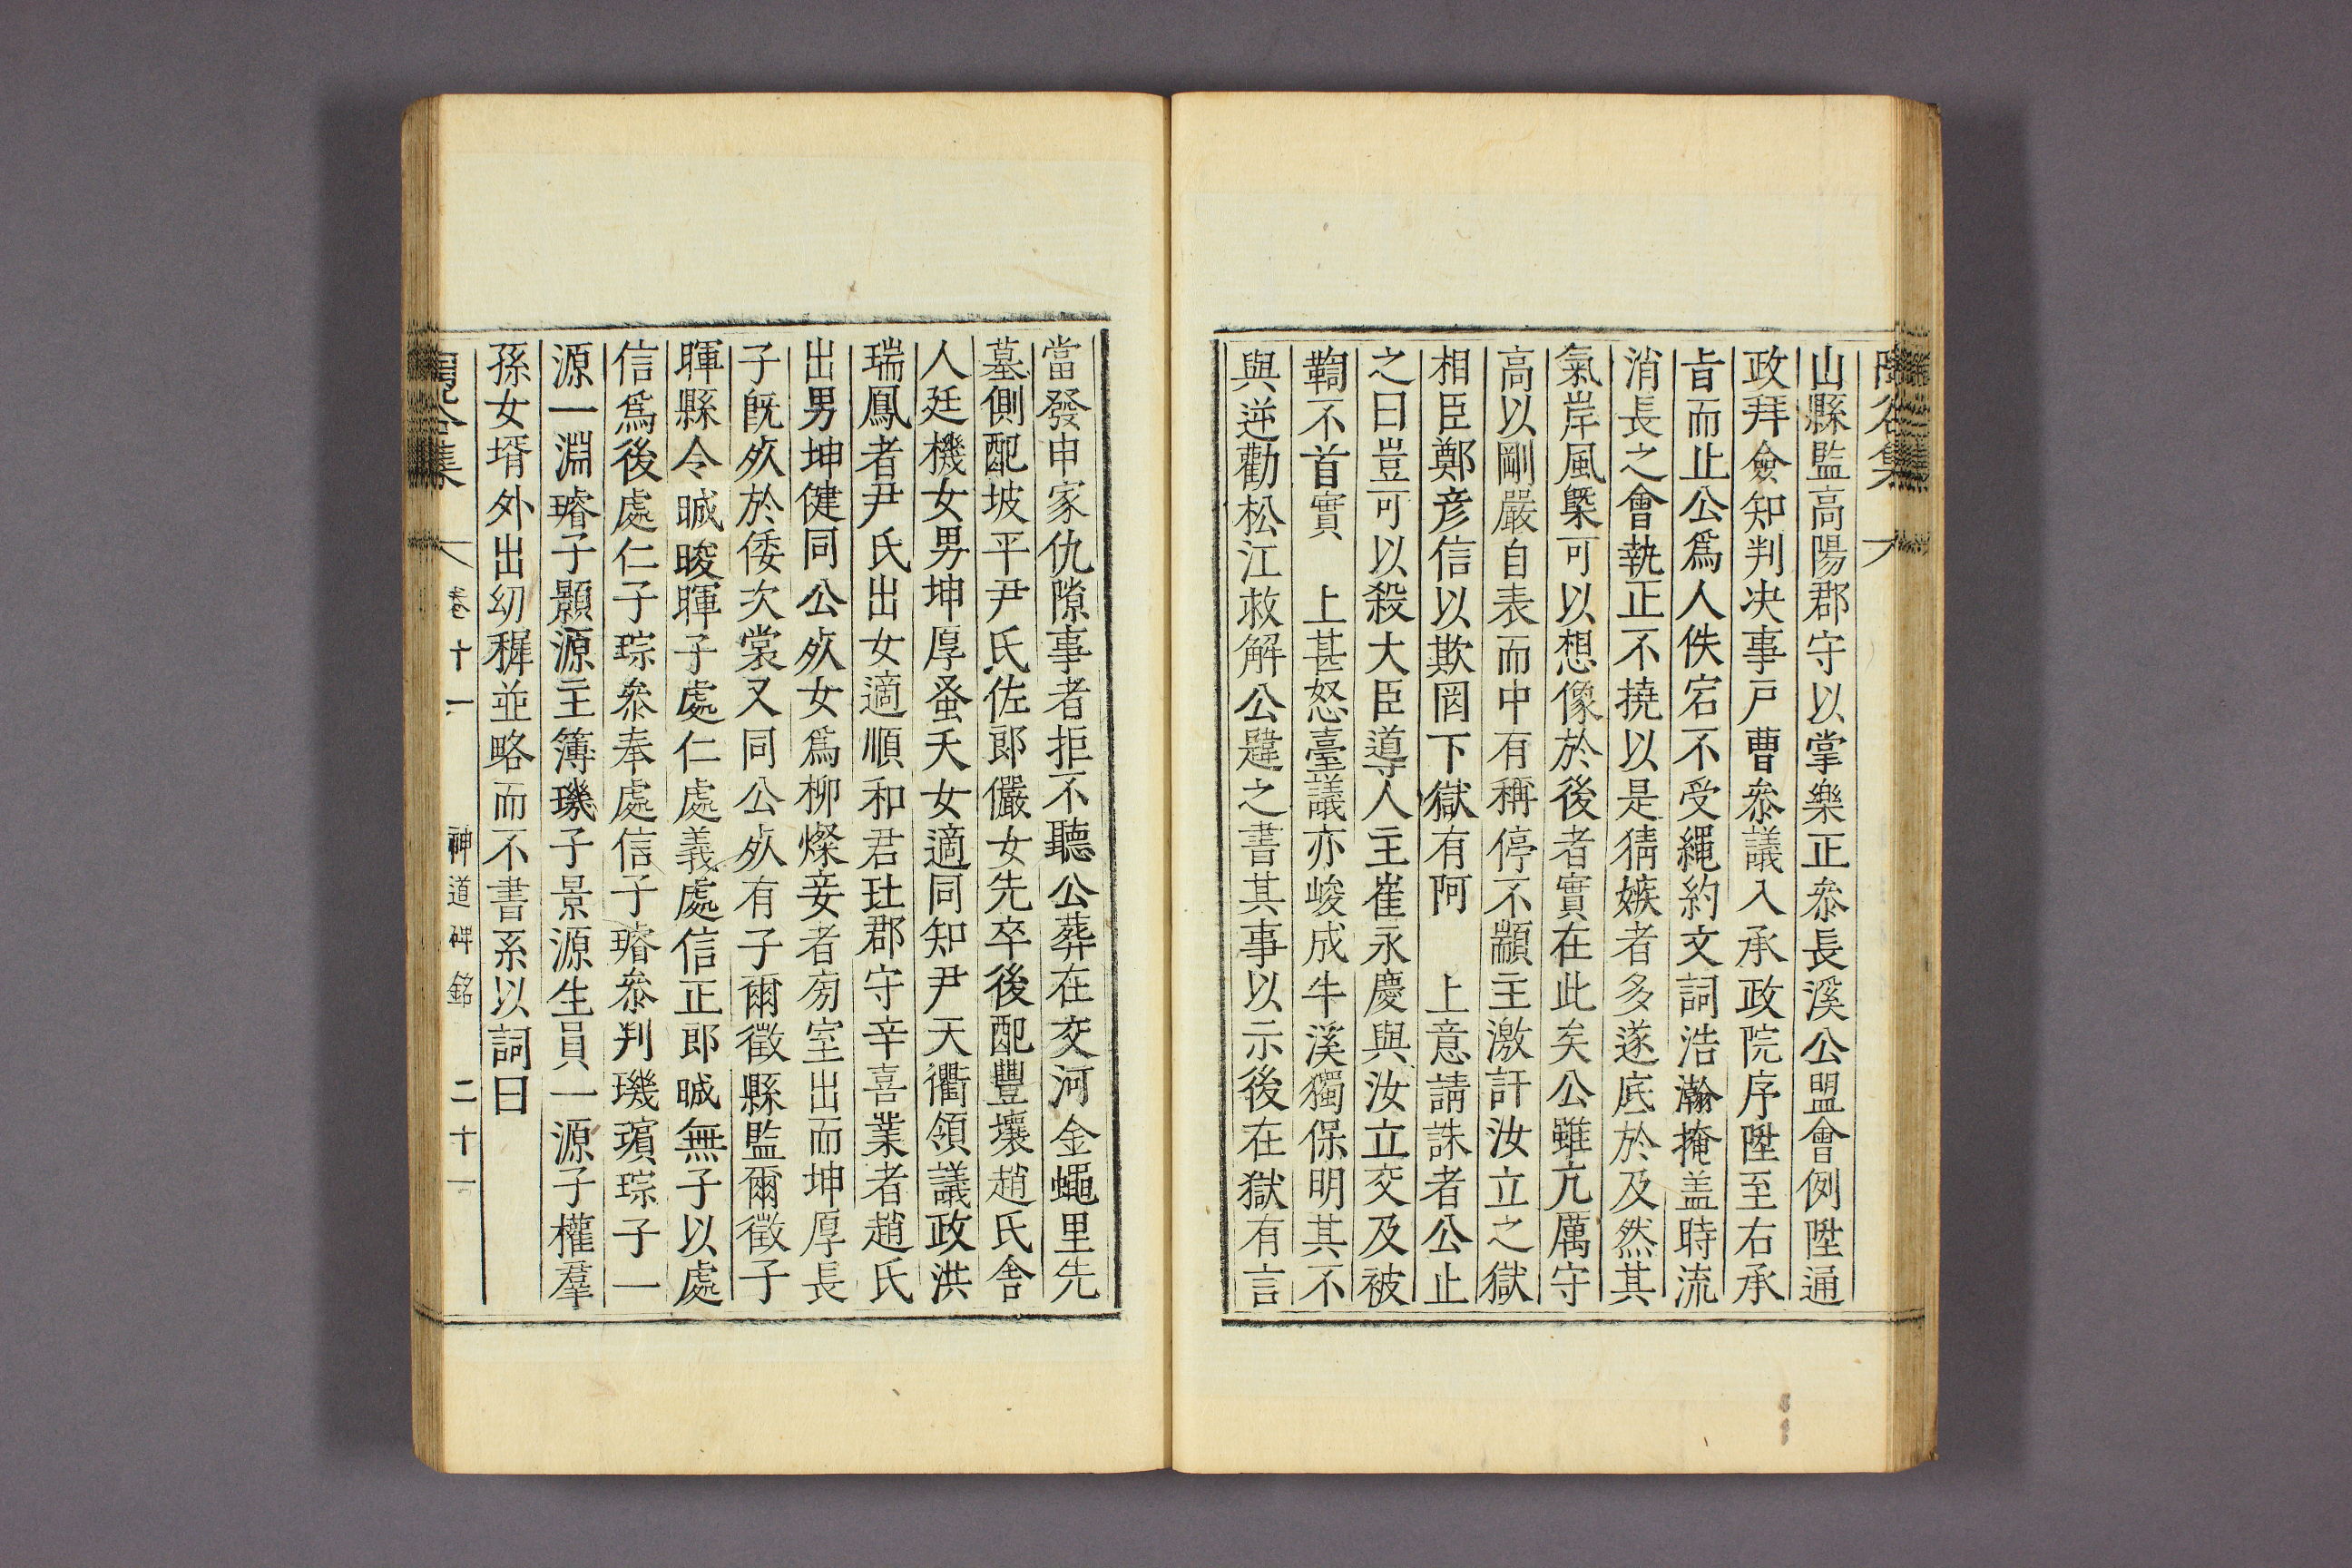 陶谷集
山縣監高陽郡守以掌樂正叅長溪公盟會例陞通
政拜僉知判决事戶曹叅議入承政院序陞至右承
旨而止公爲人佚宕不受繩約文詞浩瀚掩盖時流
消長之會執正不撓以是猜嫉者多遂底於及然其
氣岸風槩可以想像於後者實在此矣公雖亢厲守
高以剛嚴自表而中有稱停不顓主激訐汝立之獄
相臣鄭彦信以欺罔下獄有阿　上意請誅者公止
之曰豈可以殺大臣導人主崔永慶與汝立交及被
鞫不首實　上甚怒臺議亦峻成牛溪獨保明其不
與逆勸松江救解公韙之書其事以示後在獄有言
當發申家仇隙事者拒不聽公葬在交河金蠅里先
墓側配坡平尹氏佐郞儼女先卒後配豐壤趙氏舍
人廷機女男坤厚蚤夭女適同知尹天衢領議政洪
瑞鳳者尹氏出女適順和君𤣰郡守辛喜業者趙氏
出男坤健同公歿女爲柳燦妾者旁室出而坤厚長
子旣歿於倭次裳又同公歿有子爾徵縣監爾徵子
暉縣令晠晙暉子處仁處義處信正郞晠無子以處
信爲後處仁子琮叅奉處信子璿叅判璣璸琮子一
源一淵璿子顥源主簿璣子景源生員一源子權羣
孫女壻外出幼穉並略而不書系以詞曰
集
卷十一
神道碑銘
二十一